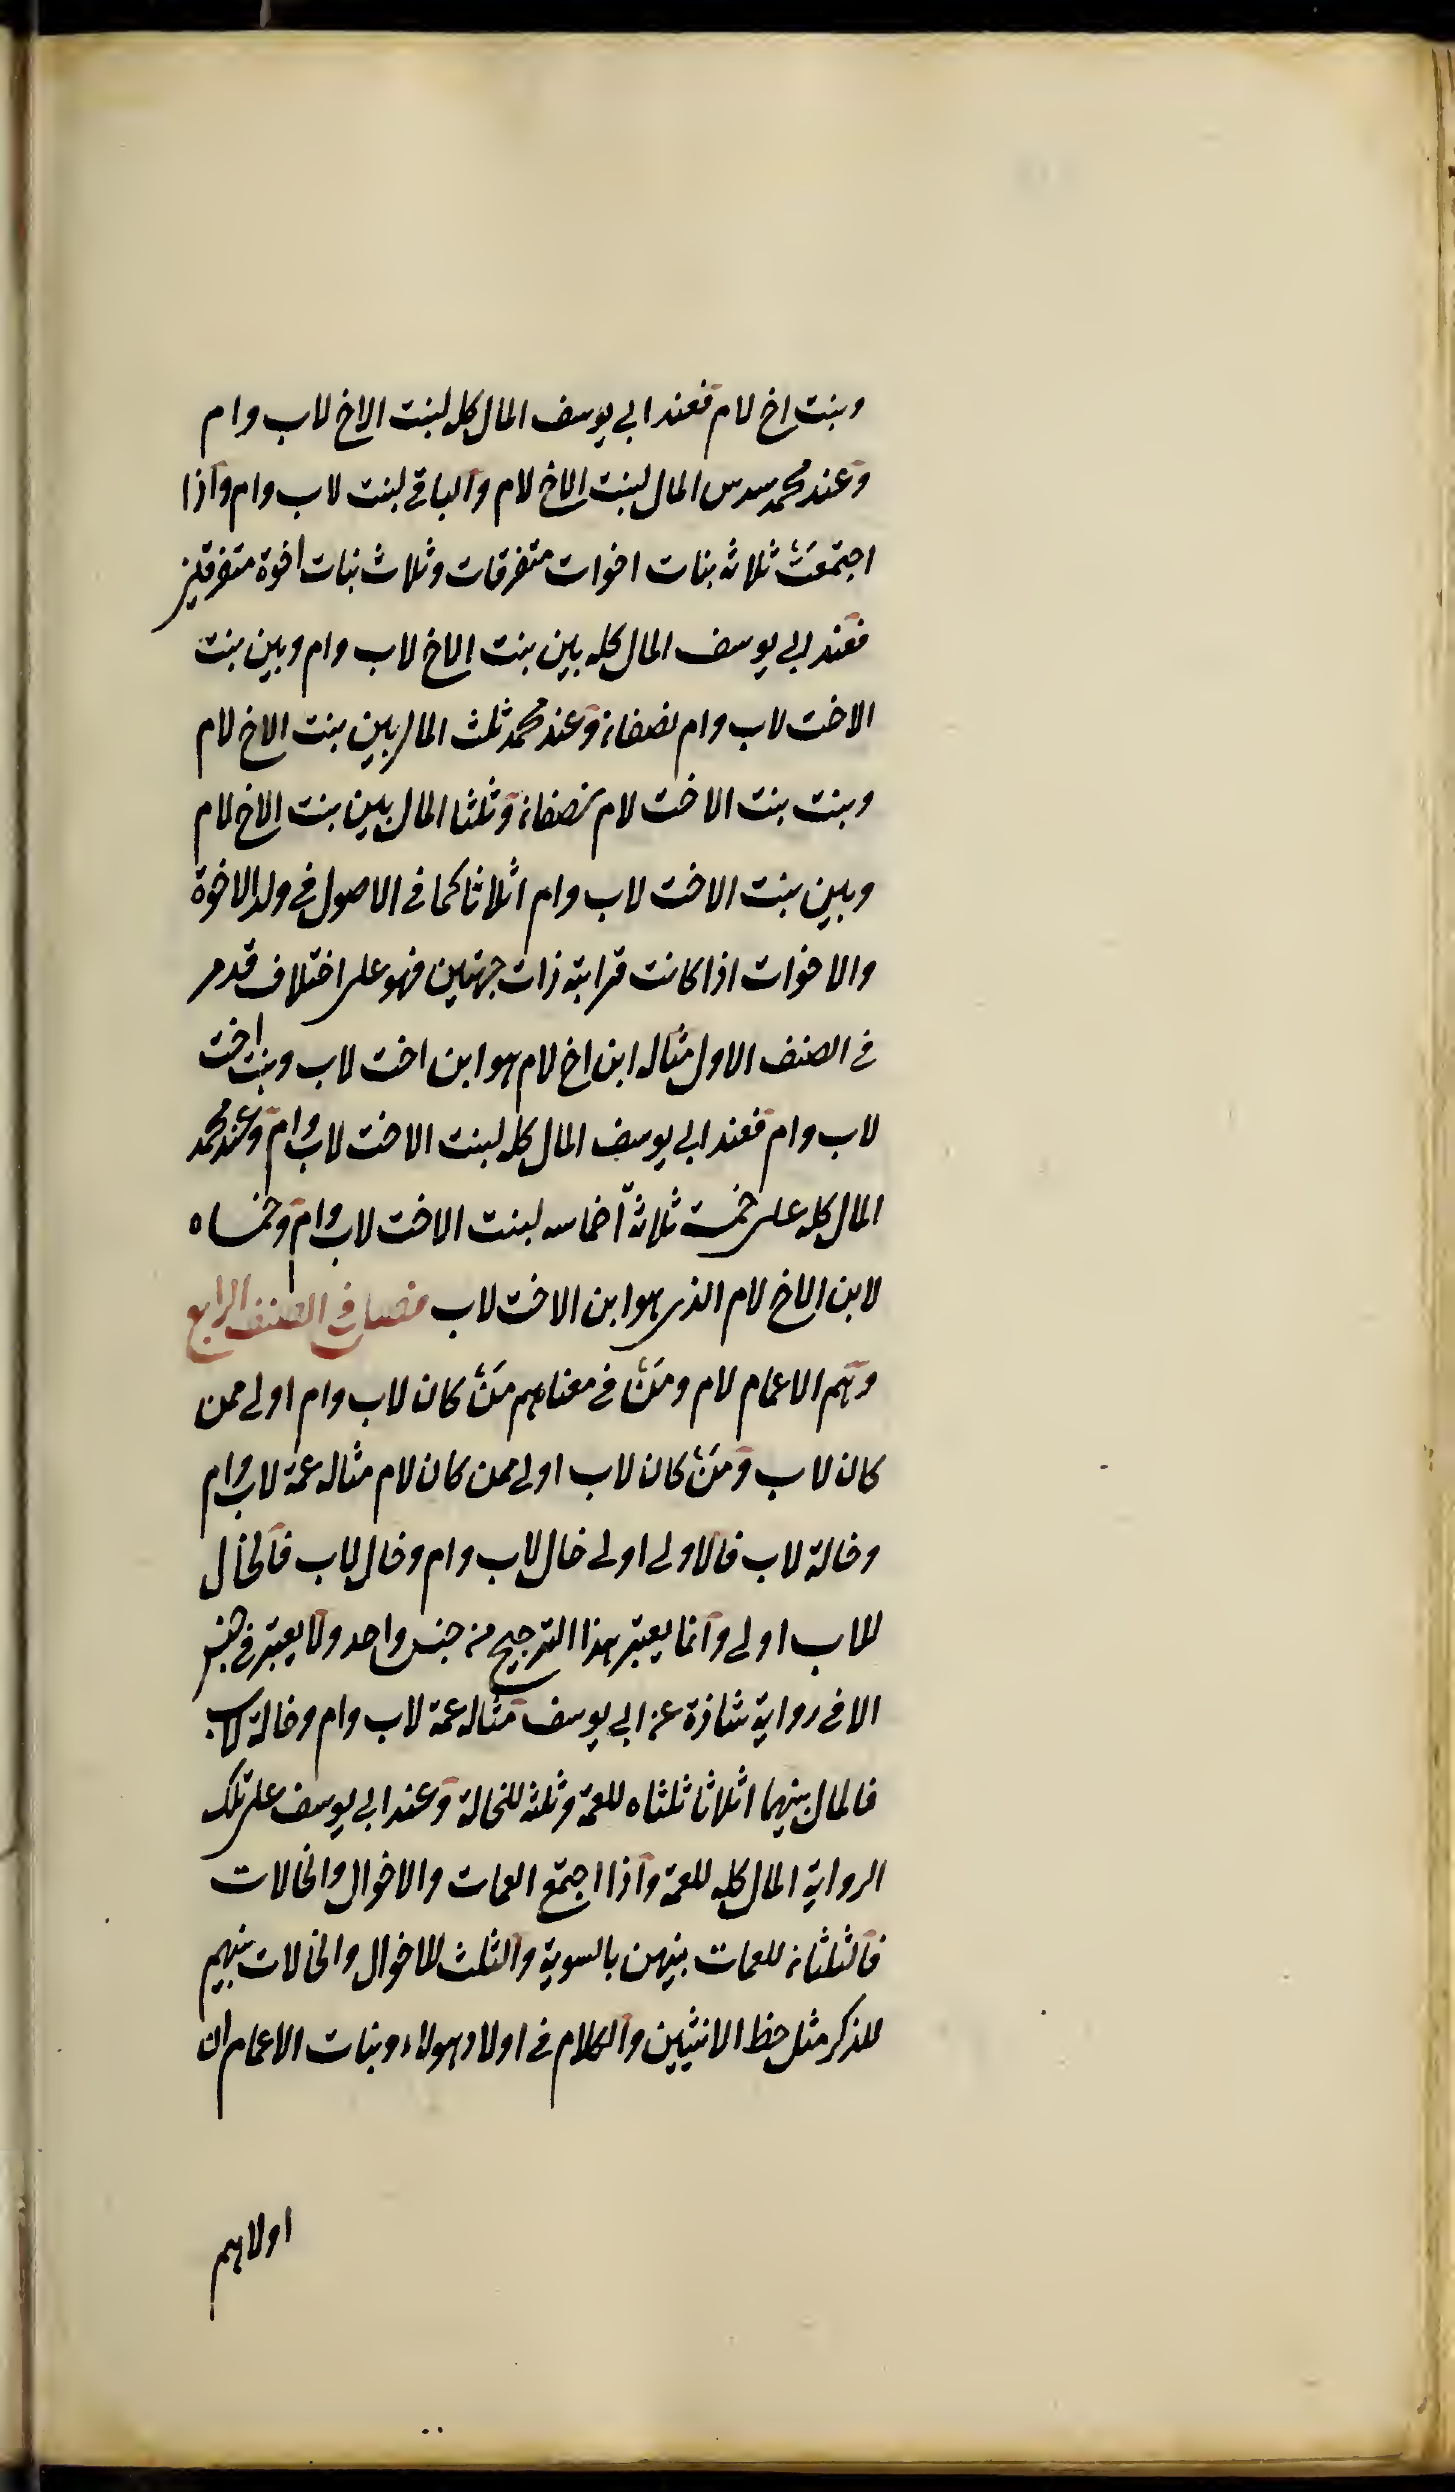 وبنت اخ لام فعند ابي يوسف المال كله لبنت الاخ لاب وام
وعند محمد سدس المال لبنت الاخ لام والباقي لبنت لاب وام واذا
اجتمعت ثلاثه بنات اخوات متفرقات وثلاث بنات اخوة متفرقين
فعند ابي يوسف المال كله بين بنت الاخ لاب وام وبين بنت
الاخت لاب وام نصفان وعند محمد ثلث المال بين بنت الاخ لام
وبنت بنت الاخت لام نصفان وثلثا المال بين بنت الاخ لام
وبين بنت الاخت لاب وام اثلاثا كما في الاصول في ولد الاخوة
والاخوات اذا كانت قرابته ذات جهتين فهو على اختلاف قد مر
في الصنف الاول مثاله ابن اخ لام هو ابن اخت لاب وبنت اخت
لاب وام فعند ابي يوسف المال كله لبنت الاخت لاب وام وعند محمد
المال كله على خمسة ثلاثة اخماسه لبنت الاخت لاب وام وخمساه
لابن الاخ لام الذي هو ابن الاخت لاب فصل في الصنف الرابع
وهم الاعمام لام ومن في معناهم من كان لاب وام اولى ممن
كان لاب ومن كان لاب اولى ممن كان لام مثاله عمة لاب وام
وخالة لاب فالاولى اولى خال لاب وام وخال لاب فالخال
للاب اولى وانما يعتبر هذا الترجيح من جنس واحد ولا يعتبر في جنس
الا في رواية شاذة عن ابي يوسف مثاله عمة لاب وام وخالة لاب
فالمال بينهما اثلاثا ثلثاه للعمة وثلثه للخالة وعند ابي يوسف على تلك
الرواية المال كله للعمة واذا اجتمع العمات والاخوال والخالات
فالثلثان للعمات بينهن بالسوية والثلث للاخوال والخالات بينهم
للذكر مثل حظ الانثيين والكلام في اولاد هولاء وبنات الاعمام ان
اولاهم